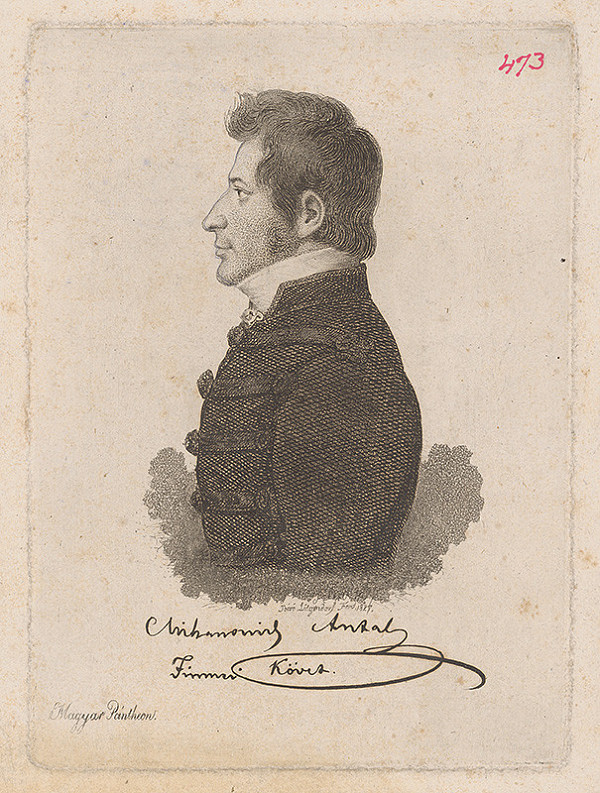 473
Mihanovich Antal
Fiumei Követ.
Magyar Pántheon.